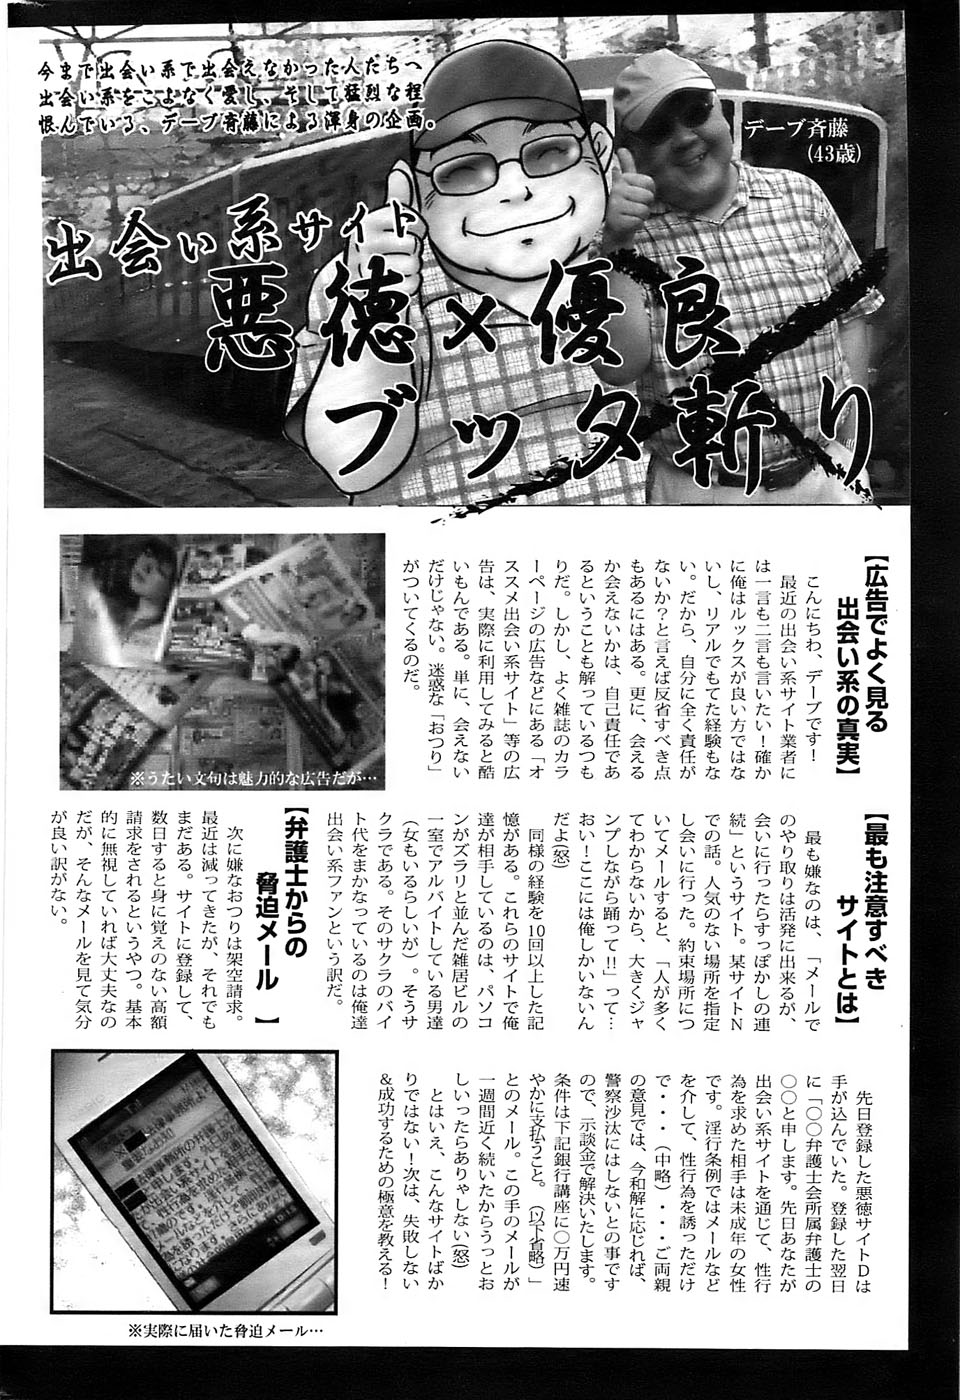 今まで出会い系で出会えなかった人たちへ
出会い系をこよなく愛し、そして猛烈な程
恨んでいる、デーブ斉藤による渾身の企画。
デーブ斉藤
(43歳)
出会い系サイト
悪徳×優良
ブッタ斬り
【広告でよく見る
出会い系の真実】
こんにちわ、デーブです！
最近の出会い系サイト業者に
は一言も二言も言いたい！確か
に俺はルックスが良い方ではな
いし、リアルでもてた経験もな
い。だから、自分に全く責任が
ないか？と言えば反省すべき点
もあるにはある。更に、会える
か会えないかは、自己責任であ
るということも解っているつも
りだ。しかし、よく雑誌のカラ
ーページの広告などにある「オ
ススメ出会い系サイト」等の広
告は、実際に利用してみると酷
いもんである。単に、会えない
だけじゃない。迷惑な「おつり」
がついてくるのだ。
※うたい文句は魅力的な広告だが…
【最も注意すべき
サイトとは】
最も嫌なのは、「メールで
のやり取りは活発に出来るが、
会いに行ったらすっぽかしの連
続」というサイト。某サイトN
での話。人気のない場所を指定
し会いに行った。約束場所につ
いてメールすると、「人が多く
てわからないから、大きくジャ
ンプしながら踊って!!」って…
おい！ここには俺しかいないん
だよ(怒)
同様の経験を10回以上した記
憶がある。これらのサイトで俺
達が相手しているのは、パソコ
ンがズラリと並んだ雑居ビルの
一室でアルバイトしている男達
（女もいるらしいが）。そうサ
クラである。そのサクラのバイ
ト代をまかなっているのは俺達
出会い系ファンという訳だ。
【弁護士からの
脅迫メール】
次に嫌なおつりは架空請求。
最近は減ってきたが、それでも
まだある。サイトに登録して、
数日すると身に覚えのない高額
請求をされるというやつ。基本
的に無視していれば大丈夫なの
だが、そんなメールを見て気分
が良い訳がない。
先日登録した悪徳サイトDは
手が込んでいた。登録した翌日
に「〇〇弁護士会所属弁護士の
〇〇と申します。先日あなたが
出会い系サイトを通じて、性行
為を求めた相手は未成年の女性
です。淫行条例ではメールなど
を介して、性行為を誘っただけ
で・・・（中略）・・・ご両親
の意見では、今和解に応じれば、
警察沙汰にはしないとの事です
ので、示談金で解決いたします。
条件は下記銀行講座に〇万円速
やかに支払うこと。（以下省略）」
とのメール。この手のメールが
一週間近く続いたからうっとお
しいったらありゃしない(怒)
とはいえ、こんなサイトばか
りではない！次は、失敗しない
＆成功するための極意を教える！
※実際に届いた脅迫メール…